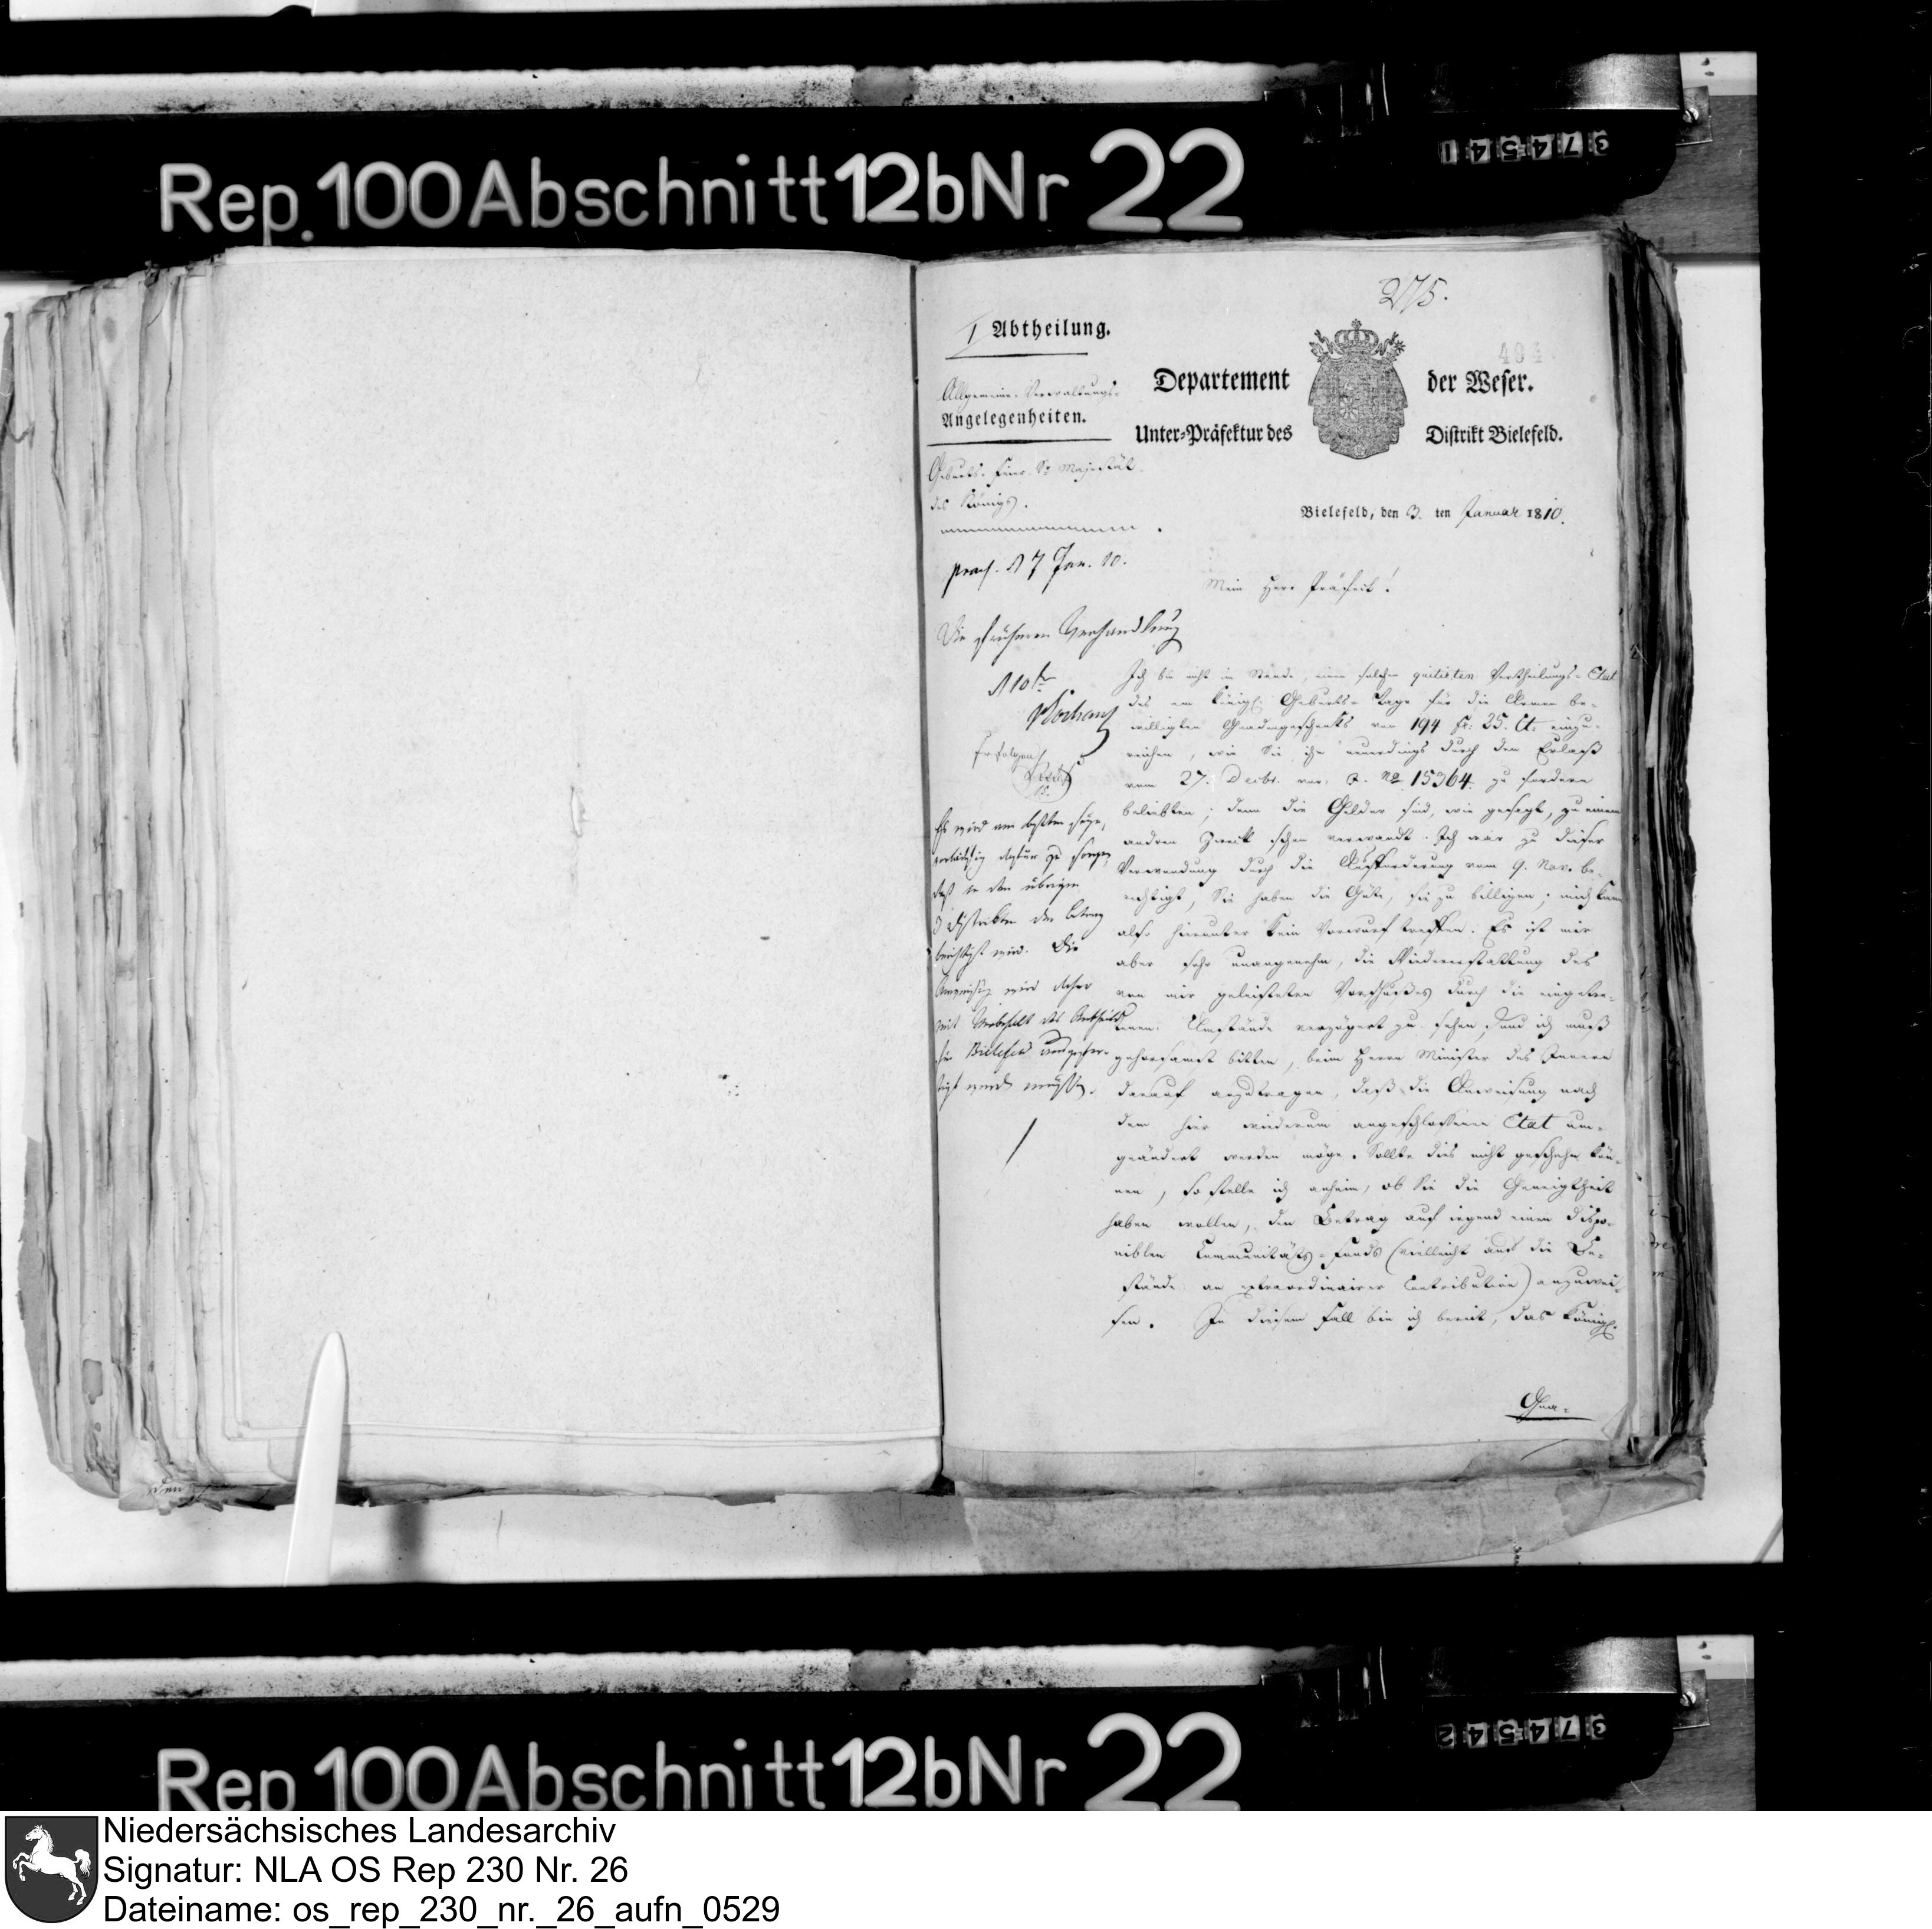 Rep. 100 Abschnitt 12b Nr 22
374541
275.
404
I Abtheilung.
Allgemeine Verwaltungs-
Angelegenheiten.
Departement der Weser.
Unter-Präfektur des Distrikt Bielefeld.
Geburts-Feier Sr Majestät
des Königs.
Bielefeld, den 3. ten Januar 1810.
praes. d 7 Jan. 10.
Mein Herr Präfect!
Die früheren Verhandlung
d 10t
erfolgen
Es wird am besten seyn,
vorläufig dafür zu sorgen,
daß in den übrigen
3 Distrikten der Betrag
berichtigt wird. Die
Anweisung wird daher
mit Vorbehalt des Antheils
für Bielefeld
werden müssen.
Ich bin nicht im Stande, einen solchen quitirten Vertheilungs-Etat
des am Königl. Geburts-Tage für die Armen be-
willigten Gnadengeschenks von 194 fr. 25. Ct. einzu-
reichen, wie Sie ihn neuerdings durch den Erlaß
vom 27. Decbr. vor. J. No 15364. zu fordern
beliebten; denn die Gelder sind, wie gesagt, zu einem
andren Zweck schon verwandt. Ich war zu dieser
Verwendung durch die Aufforderung vom 9. Nov. be-
rechtigt, Sie haben die Güte, sie zu billigen; mich kann
also hierunter kein Vorwurf treffen. Es ist mir
aber sehr unangenehm, die Wiedererstattung des
von mir geleisteten Vorschußes durch die eingetre-
tenen Umstände verzögert zu sehen, und ich muß
gehorsamst bitten, beim Herrn Minister des Innern
darauf anzutragen, daß die Anweisung nach
dem hier wiederum angeschlossenen Etat um-
geändert werden möge. Sollte dies nicht geschehn kön-
nen, so stelle ich anheim, ob Sie die Geneigtheit
haben wollen, den Betrag auf irgend einen dispo-
niblen Communitäts-Fonds (vielleicht auf die Be-
stände an extraordinairer Contribution) anzuwei-
sen. In diesem Fall bin ich bereit, das Königl.
Gna-
den
Rep 100 Abschnitt 12b Nr 22
374542
Niedersächsisches Landesarchiv
Signatur: NLA OS Rep 230 Nr. 26
Dateiname: os_rep_230_nr._26_aufn_0529